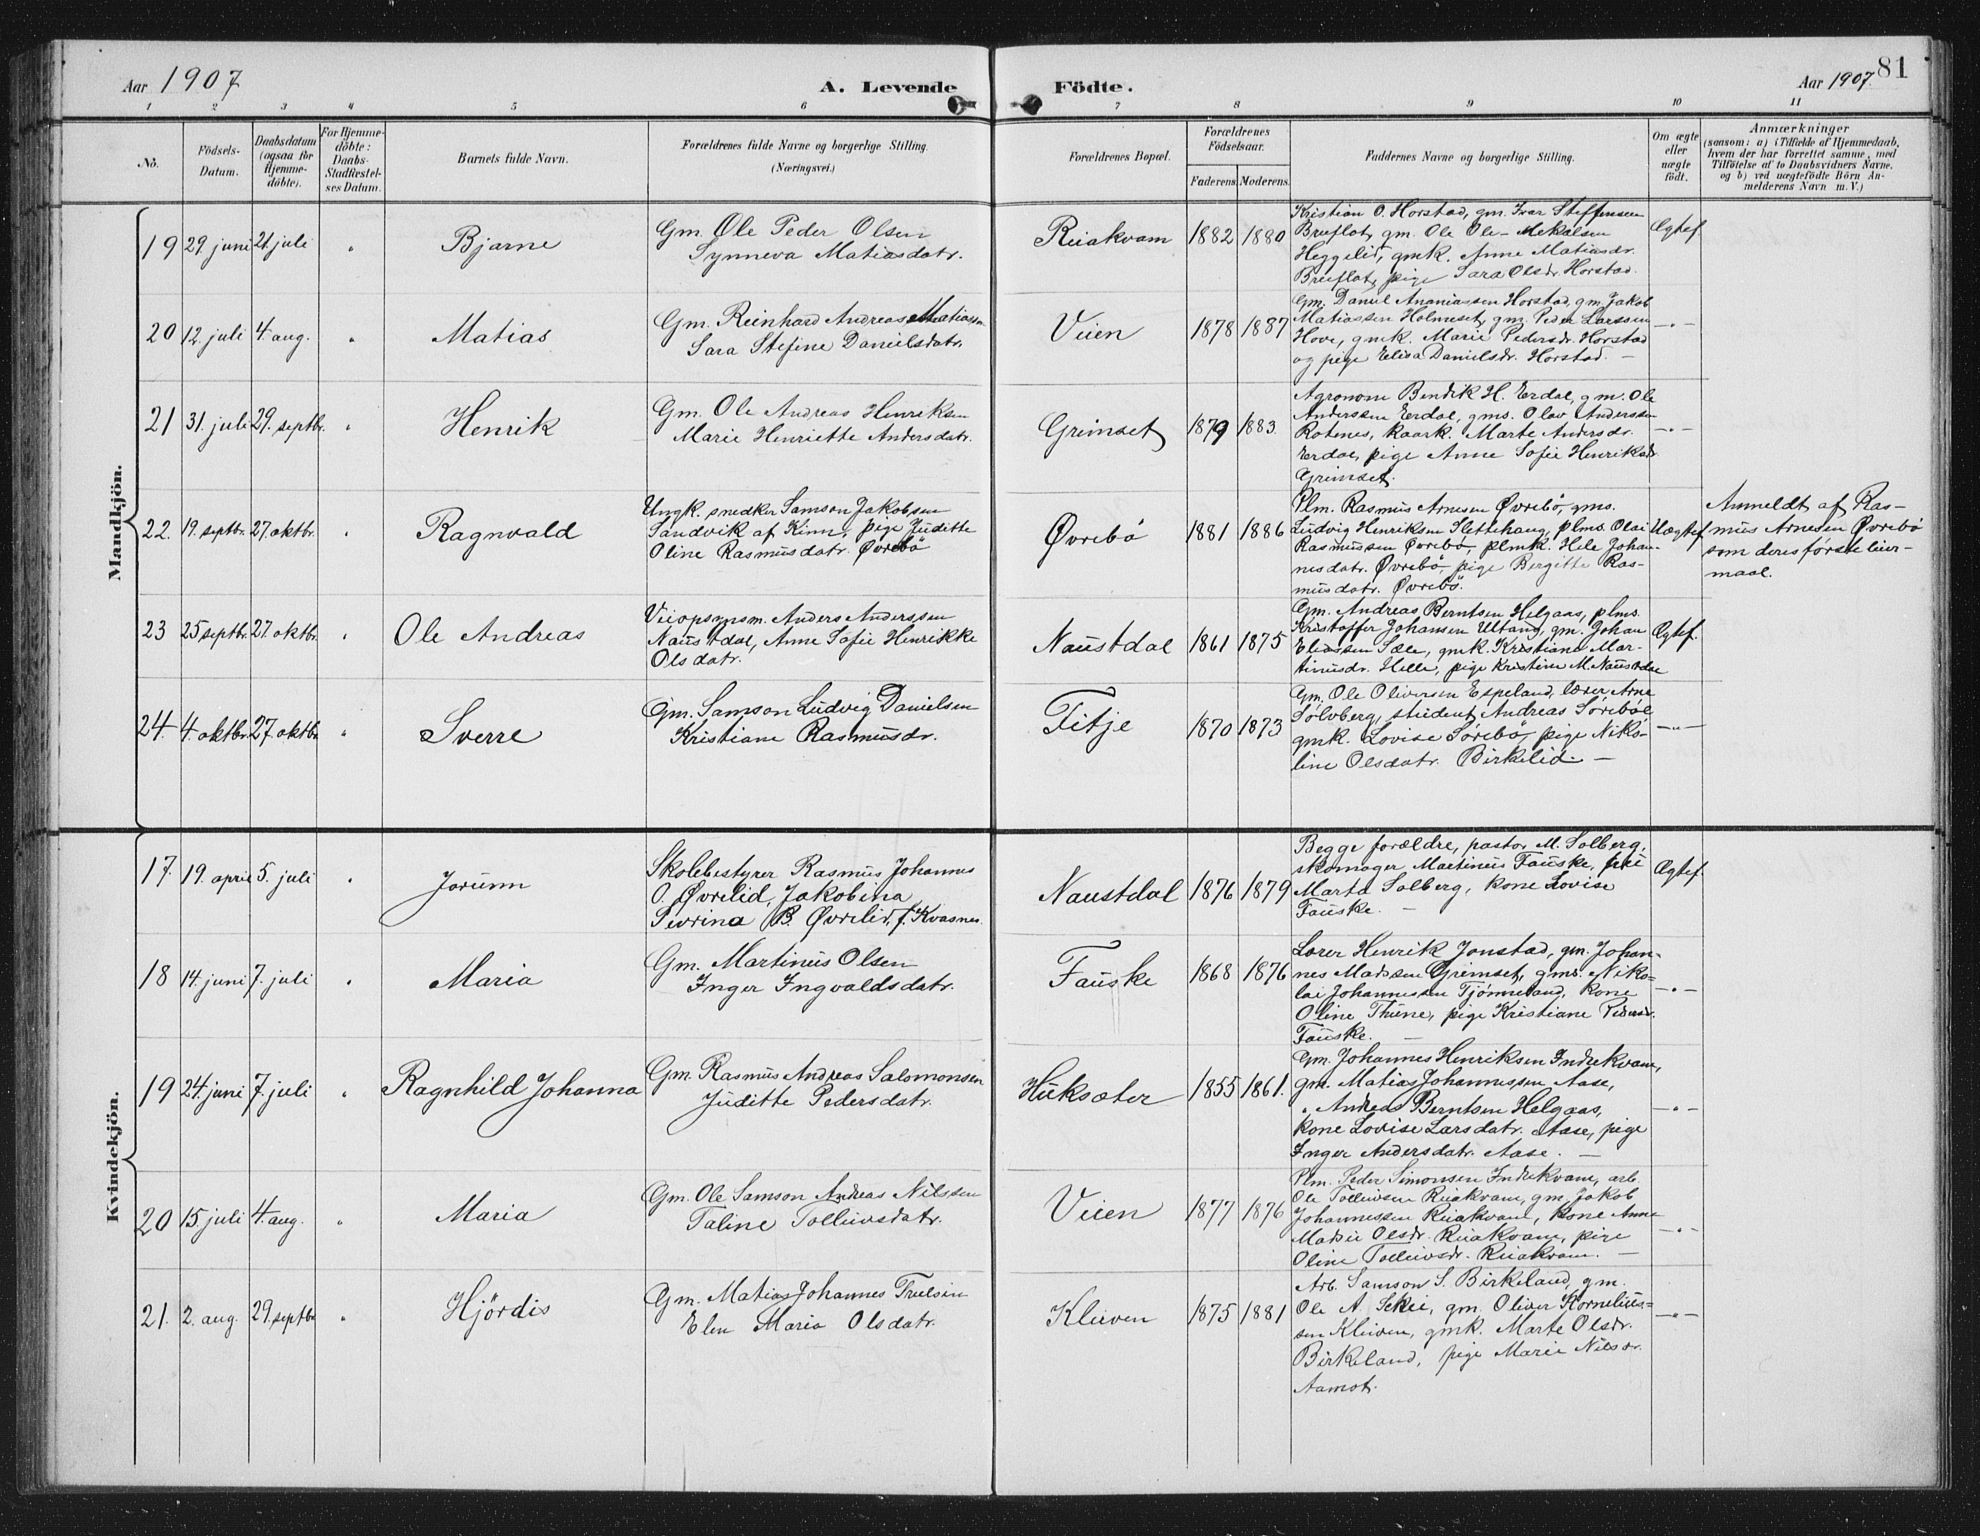 Aar 1907
A. Levende
Födte.
Aar 1907.
81
1 2 3 4 5 6 7 8 9 10 11
No.
Födsels-
Datum.
Daabsdatum
(ogsaa for
Hjemme-
döbte).
For Hjemme-
döbte:
Daabs-
Stadfæstel-
ses Datum.
Barnets fulde Navn.
Forældrenes fulde Navne og borgerlige Stilling.
(Næringsvei.)
Forældrenes Bopæl.
Forældrenes
Födselsaar.
Faderens. Moderens.
Faddernes Navne og borgerlige Stilling.
Om ægte
eller
uægte
födt.
Anmærkninger
(saasom: a) i Tilfælde af Hjemmedaab,
hvem der har forrettet samme, med
Tilföielse af to Daabsvidners Navne,
og b) ved uægtefödte Börn An-
melderens Navn m. V.)
Mandkjön.
19 29. juni 21. juli " Bjarne
Gm. Ole Peder Olsen
Synneva Matiasdatr.
Ruakvam 1882 1880
Kristian O. Horstad, gm. Ivar Steffensen
Breiflot, gm. Ole Ole- Mekalsen
Heggelid, gmk. Anne Matiasdr.
Breiflot, pige Sara Olsdr. Horstad.
Ægtef.
20 12. juli 4. aug. " Matias
Gm. Reinhard Andreas Matiassen
Sara Stefine Danielsdatr.
Vieien 1878 1887
Gm. Daniel Ananiassen Horstad, gm. Jakob
Matiassen Holmeset, gm. Peder Larssen
Hove, gmk. Marie Pedersdr. Horstad
og pige Elisa Danielsdr. Horstad. —
—"—
21 31. juli 29. septbr. " Henrik
Gm. Ole Andreas Henriksen
Marie Henriette Andersdatr.
Grimset 1879 1883.
Agronom Bendik H. Erdal, gm. Ole
Anderssen Erdal, gms. Olav Anderssen
Rotenes, kaark. Marte Andersdr.
Erdal, pige Anne Sofie Henriksdr.
Grimset.
—"—
22. 19. septbr. 27. oktbr. " Ragnvald
Ungk. snedker Samson Jakobsen
Sandvik af Kinn, pige Juditte
Oline Rasmusdatr. Øvrebö
Øvrebö 1881 1886
Plm. Rasmus Arnesen Øvrebö, gms.
Ludvig Henriksen Slettehaug, plms. Olai
Rasmussen Øvrebö, plmk. Hele Johan-
nesdatr. Øvrebö, pige Bergitte Ras-
musdatr. Øvrebö.
Uægtef.
Anmeldt af Ras-
mus Arnesen Øvrebö
som deres første leier-
maal.
23 25 septbr. 27. oktbr. " Ole Andreas
Veiopsynsm. Anders Anderssen
Naustdal, Anne Sofie Henrikke
Olsdatr.
Naustdal 1861 1875
Gm. Andreas Berntsen Helgaas, plms.
Kristoffer Johansen Ullaug, gm. Johan
Eliassen Sæle, gmk. Kristiane Mar-
tinusdr. Helle, pige Kristine M. Naustdal
Ægtef.
24. 4. oktbr. 27. oktbr. " Sverre
Gm. Samson Ludvig Danielsen
Kristiane Rasmusdr.
Fitje 1870 1873
Gm. Ole Oliversen Espeland, lærer Arne
Sølvberg, student Andreas Sørebö,
gmk. Lovise Sørebö, pige Niko-
line Olsdatr. Birkelid. —
—"—
Kvindekjön.
17. 19. april 5. juli " Jorunn
Skolebestyrer Rasmus Johannes
O. Øvrelid, Jakobina
Sevrina B. Øvrelid, f. Kvasnes.
Naustdal 1876 1879
Begge forældre, pastor M. Solberg,
skomager Martinus Fauske, frk.
Marta Solberg, kone Lovise
Fauske. —
Ægtef.
18 14. juni 7. juli " Maria
Gm. Martinus Olsen
Inger Ingvaldsdatr.
Fauske 1868 1876
Lærer Henrik Jonstad, gm. Johan-
nes Madssen Grimset, gms. Niko-
lai Johannessen Tjønneland, kone
Oline Thune, pige Kristiane Pedersdr.
Fauske. —
—"—
19 24. juni 7. juli " Ragnhild Johanna
Gm. Rasmus Andreas Salomonsen
Juditte Pedersdatr.
Huksæter 1855 1861.
Gm. Johannes Henriksen Indrekvam,
gm. Matias Johannessen Aase,
" Andreas Berntsen Helgaas,
kone Lovise Larsdatr. Aase, pige
Inger Andersdatr. Aase. —
—"—
20 15. juli 4. aug. " Maria
Gm. Ole Samson Andreas Nilssen
Taline Tolleivsdatr.
Vieien 1877 1876
Plm. Peder Simonsen Indrekvam, arb.
Ole Tolleivsen Ruakvam, gm. Jakob
Johannessen Ruakvam, kone Anne
Madsie Olsdr. Ruakvam, pige
Oline Tolleivsdr. Ruakvam. —
—"—
21. 2. aug. 29. septbr. " Hjördis
Gm. Matias Johannes Truelsen
Elen Maria Olsdatr.
Kleiven 1875 1881
Arb. Samson S. Birkeland, gm.
Ole A. Skei, gm. Oliver Kornelius-
sen Kleiven, gmk. Marte Olsdr.
Birkeland, pige Marie Nilsdr.
Aamot.
—"—